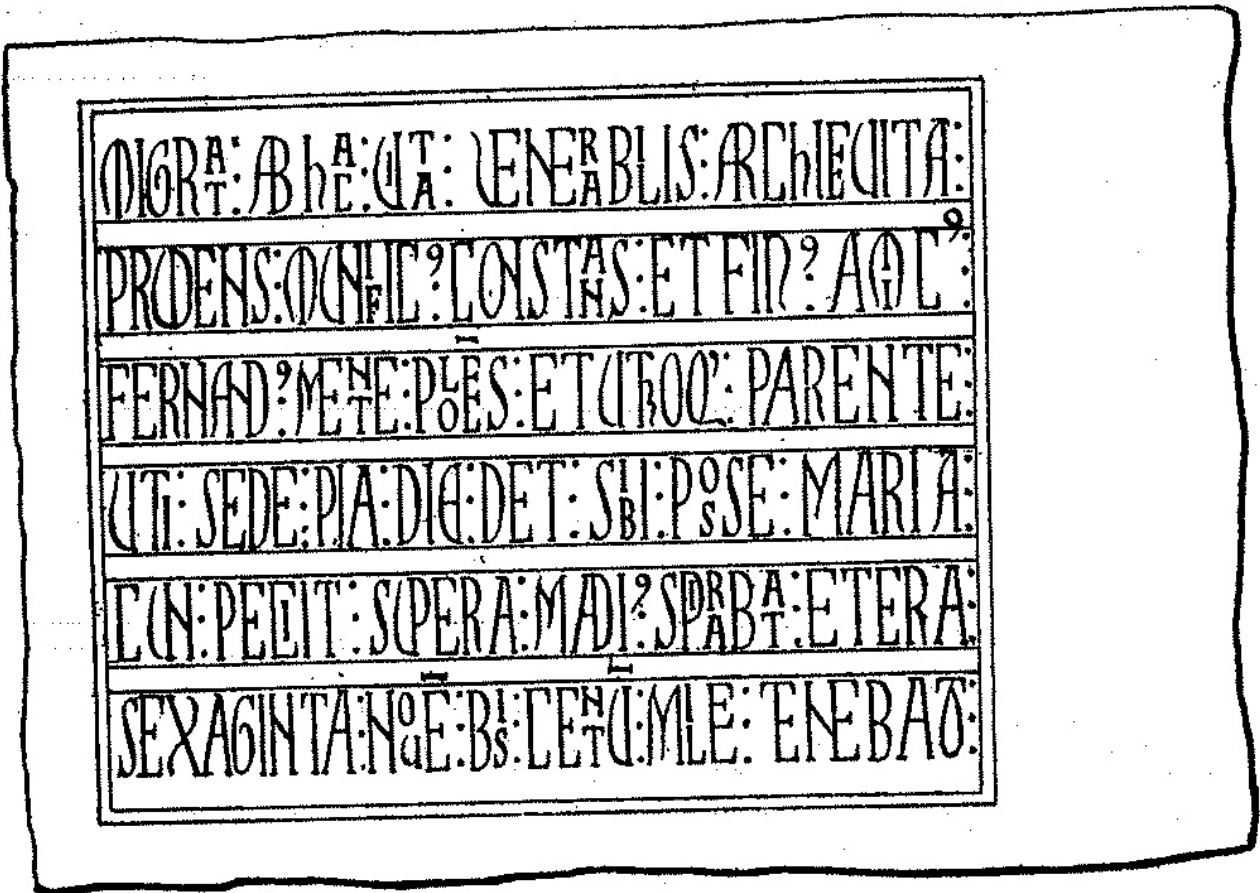 MIGRAT: AB hAC: UITA: UENERABILIS: ARChILEUITA:
PRUDENS: MUNIFICꝰ: CONSTANS: ET FIRMꝰ: AMICꝰ:
FERNANDꝰ: MENTE: PLOĒS: ET UTROQ: PARENTE:
UTI: SEDE: PIA: DIE: DET: SIBI: POSSE: MARIA:
CUN: PECIIT: SUPERA: MADIꝰ: SPIRABAT: ET ERA:
SEXAGINTA: NOUĒ: BIS: CENTŪ: MILE: TENEBAT: